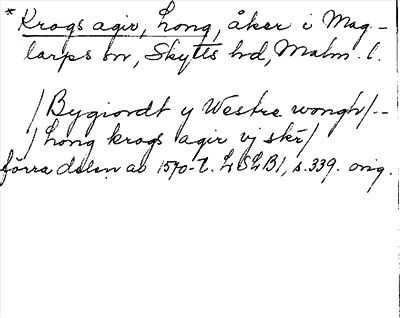 * Krogs agir, hong, åker i Mag-
larps sn, Skytts hd, Malm. l.
/Bygiordt y Westre wongh/--
/hong krogs agir vj skr/
förra delen av 1570-t. LSLB1, s. 339. orig.